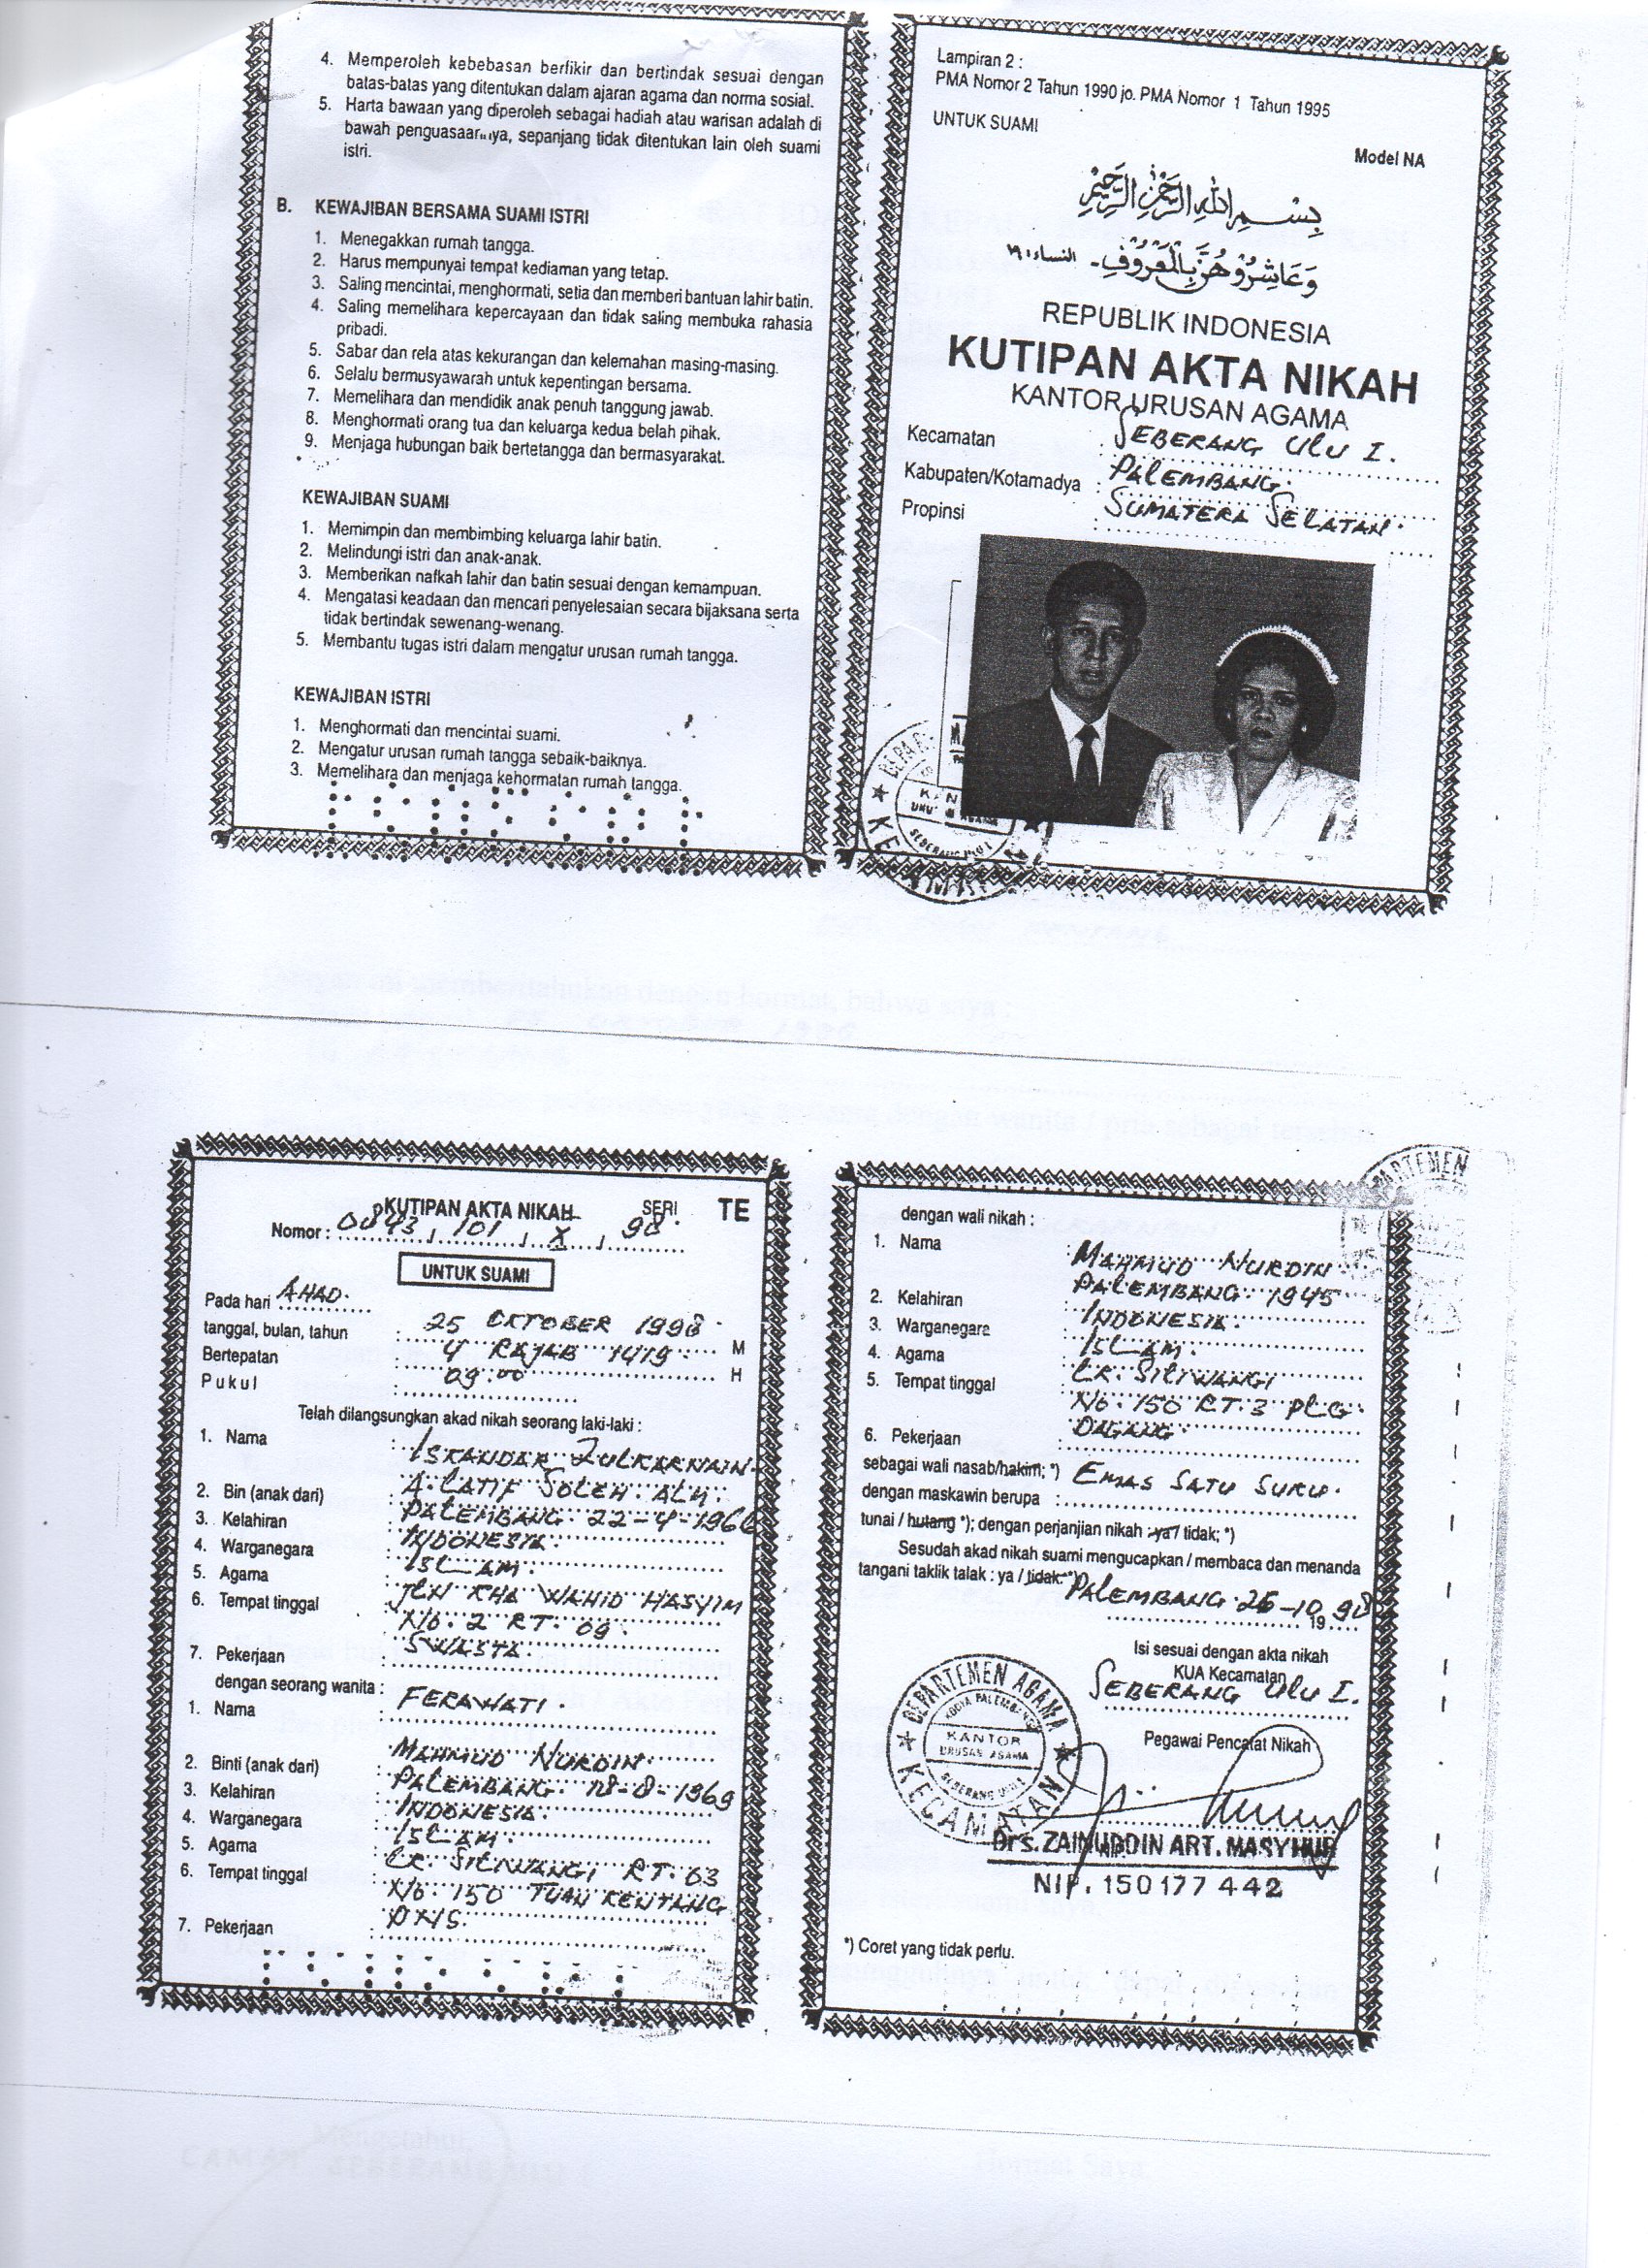 4. Memperoleh kebebasan berfikir dan bertindak sesuai dengan
batas-batas yang ditentukan dalam ajaran agama dan norma sosial.
5. Harta bawaan yang diperoleh sebagai hadiah atau warisan adalah di
bawah penguasaannya, sepanjang tidak ditentukan lain oleh suami
istri.
B. KEWAJIBAN BERSAMA SUAMI ISTRI
1. Menegakkan rumah tangga.
2. Harus mempunyai tempat kediaman yang tetap.
3. Saling mencintai, menghormati, setia dan memberi bantuan lahir batin.
4. Saling memelihara kepercayaan dan tidak saling membuka rahasia
pribadi.
5. Sabar dan rela atas kekurangan dan kelemahan masing-masing.
6. Selalu bermusyawarah untuk kepentingan bersama.
7. Memelihara dan mendidik anak penuh tanggung jawab.
8. Menghormati orang tua dan keluarga kedua belah pihak.
9. Menjaga hubungan baik bertetangga dan bermasyarakat.
KEWAJIBAN SUAMI
1. Memimpin dan membimbing keluarga lahir batin.
2. Melindungi istri dan anak-anak.
3. Memberikan nafkah lahir dan batin sesuai dengan kemampuan.
4. Mengatasi keadaan dan mencari penyelesaian secara bijaksana serta
tidak bertindak sewenang-wenang.
5. Membantu tugas istri dalam mengatur urusan rumah tangga.
KEWAJIBAN ISTRI
1. Menghormati dan mencintai suami.
2. Mengatur urusan rumah tangga sebaik-baiknya.
3. Memelihara dan menjaga kehormatan rumah tangga.
Lampiran 2 :
PMA Nomor 2 Tahun 1990 jo. PMA Nomor 1 Tahun 1995
UNTUK SUAMI
Model NA
بِسْمِ اللهِ الرَّحْمٰنِ الرَّحِيْمِ
وَعَاشِرُوْهُنَّ بِالْمَعْرُوْفِ - النساء ١٩
REPUBLIK INDONESIA
KUTIPAN AKTA NIKAH
KANTOR URUSAN AGAMA
Kecamatan : SEBERANG ULU I.
Kabupaten/Kotamadya : PALEMBANG.
Propinsi : SUMATERA SELATAN.
KUTIPAN AKTA NIKAH SERI TE
Nomor : 0043, 101, X, 98.
UNTUK SUAMI
Pada hari AHAD.
tanggal, bulan, tahun : 25 OKTOBER 1998. M
Bertepatan : 4 RAJAB 1419. H
Pukul : 09.00
Telah dilangsungkan akad nikah seorang laki-laki :
1. Nama : ISKANDAR ZULKARNAIN.
2. Bin (anak dari) : A. LATIF SOLEH. ALM.
3. Kelahiran : PALEMBANG. 22-4-1966
4. Warganegara : INDONESIA.
5. Agama : ISLAM.
6. Tempat tinggal : JLN KHA WAHID HASYIM
NO. 2 RT. 09.
7. Pekerjaan : SWASTA.
dengan seorang wanita :
1. Nama : FERAWATI.
2. Binti (anak dari) : MAHMUD NURDIN.
3. Kelahiran : PALEMBANG. 18-8-1969
4. Warganegara : INDONESIA.
5. Agama : ISLAM.
6. Tempat tinggal : LR. SILIWANGI RT. 03
NO. 150 TUAN KENTANG
7. Pekerjaan :
dengan wali nikah :
1. Nama : MAHMUD NURDIN.
2. Kelahiran : PALEMBANG. 1945
3. Warganegara : INDONESIA.
4. Agama : ISLAM.
5. Tempat tinggal : LR. SILIWANGI
NO. 150 RT. 3 PLG.
6. Pekerjaan : DAGANG.
sebagai wali nasab/hakim; *)
dengan maskawin berupa : EMAS SATU SUKU.
tunai / hutang *); dengan perjanjian nikah : ya / tidak; *)
Sesudah akad nikah suami mengucapkan / membaca dan menanda
tangani taklik talak : ya / tidak *)
PALEMBANG. 26-10 19 98
Isi sesuai dengan akta nikah
KUA Kecamatan
SEBERANG ULU I.
Pegawai Pencatat Nikah
DEPARTEMEN AGAMA
KODYA PALEMBANG
KANTOR
URUSAN AGAMA
SEBERANG ULU I
KECAMATAN
Drs. ZAINUDDIN ART. MASYHUR
NIP. 150177442
*) Coret yang tidak perlu.